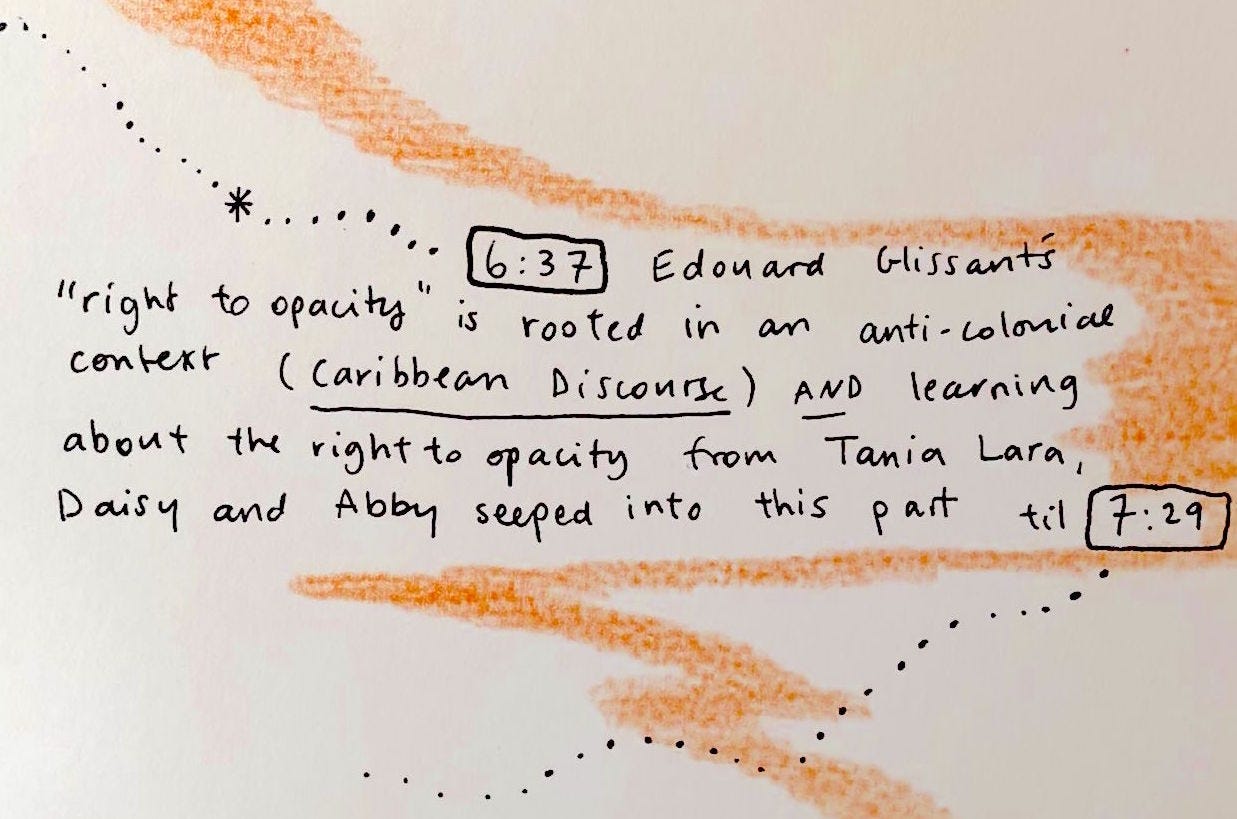 * 6:37 Edouard Glissant's
"right to opacity" is rooted in an anti-colonial
context (Caribbean Discourse) AND learning
about the right to opacity from Tania Lara,
Daisy and Abby seeped into this part til 7:29